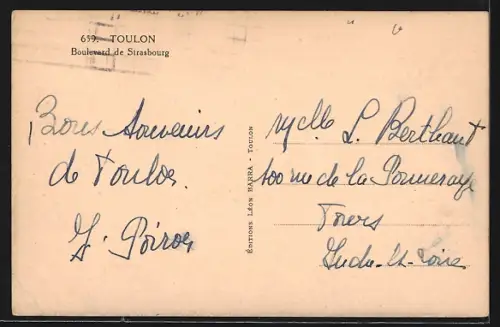 659. - TOULON
Boulevard de Strasbourg
Bons Souvenirs
de Toulon.
ÉDITIONS LÉON BARRA - TOULON
Mlle L. Berthaut
100 rue de la Pommeraye
Tours
Indre-et-Loire